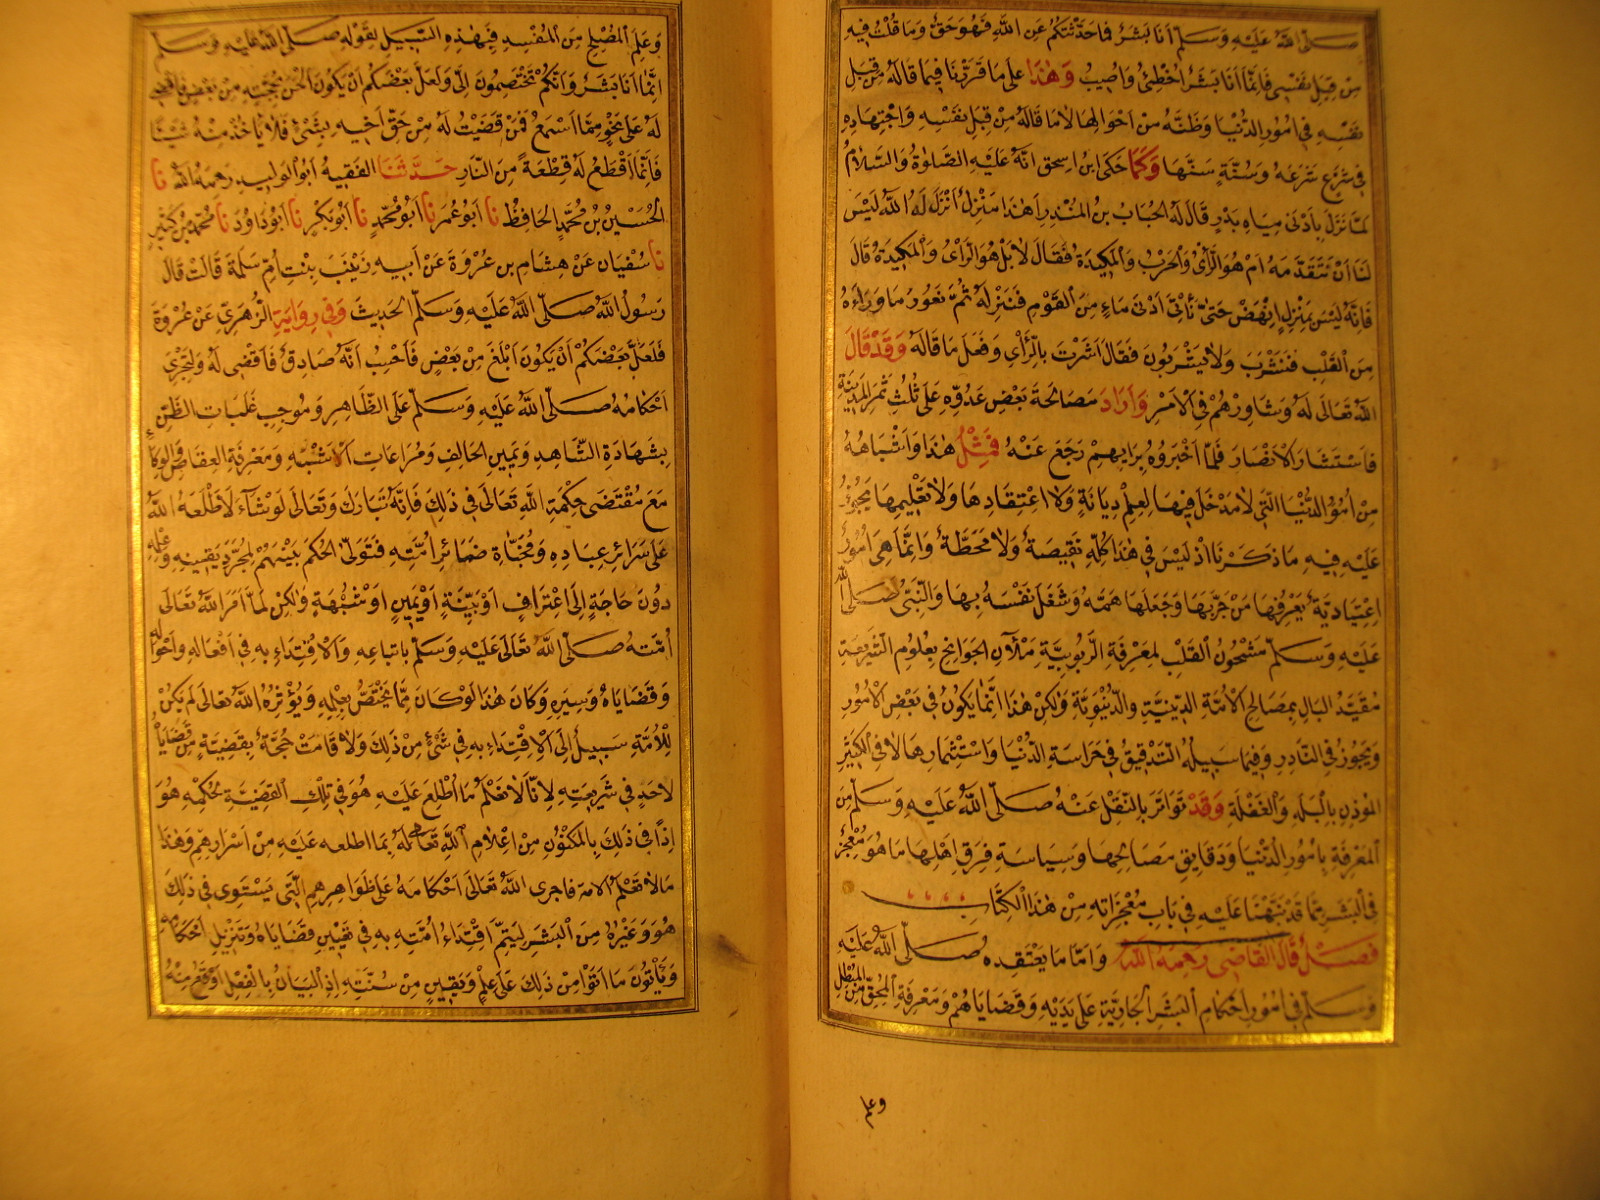 صَلَّى اللَّهُ عَلَيْهِ وَسَلَّمَ أَنَا بَشَرٌ فَمَا حَدَّثْتُكُمْ عَنِ اللَّهِ فَهُوَ حَقٌّ وَمَا قُلْتُ فِيهِ
مِنْ قِبَلِ نَفْسِي فَإِنَّمَا أَنَا بَشَرٌ أُخْطِئُ وَأُصِيبُ وَهٰذَا عَلَى مَا قَرَّرْنَا فِيمَا قَالَهُ مِنْ قِبَلِ
نَفْسِهِ فِي أُمُورِ الدُّنْيَا وَظَنِّهِ مِنْ أَحْوَالِهَا لَا مَا قَالَهُ مِنْ قِبَلِ نَفْسِهِ وَاجْتِهَادِهِ
فِي شَرْعٍ شَرَعَهُ وَسُنَّةٍ سَنَّهَا وَكَمَا حَكَى ابْنُ اسحق أَنَّهُ عَلَيْهِ الصَّلٰوةُ وَالسَّلَامُ
لَمَّا نَزَلَ بِأَدْنَى مِيَاهِ بَدْرٍ قَالَ لَهُ الْحُبَابُ بْنُ الْمُنْذِرِ أَهٰذَا مَنْزِلٌ أَنْزَلَهُ اللَّهُ لَيْسَ
لَنَا أَنْ نَتَقَدَّمَهُ أَمْ هُوَ الرَّأْيُ وَالْحَرْبُ وَالْمَكِيدَةُ فَقَالَ لَا بَلْ هُوَ الرَّأْيُ وَالْمَكِيدَةُ قَالَ
فَإِنَّهُ لَيْسَ بِمَنْزِلٍ انْهَضْ حَتَّى نَأْتِيَ أَدْنَى مَاءٍ مِنَ الْقَوْمِ فَنَنْزِلَهُ ثُمَّ نُغَوِّرُ مَا وَرَاءَهُ
مِنَ الْقُلُبِ فَنَشْرَبَ وَلَا يَشْرَبُونَ فَقَالَ أَشَرْتَ بِالرَّأْيِ وَفَعَلَ مَا قَالَهُ وَقَدْ قَالَ
اللَّهُ تَعَالَى لَهُ وَشَاوِرْهُمْ فِي الْأَمْرِ وَأَرَادَ مُصَالَحَةَ بَعْضِ عَدُوِّهِ عَلَى ثُلُثِ ثَمَرِ الْمَدِينَةِ
فَاسْتَشَارَ الْأَنْصَارَ فَلَمَّا أَخْبَرُوهُ بِرَأْيِهِمْ رَجَعَ عَنْهُ فَمِثْلُ هٰذَا وَأَشْبَاهُهُ
مِنْ أُمُورِ الدُّنْيَا الَّتِي لَا مَدْخَلَ فِيهَا لِعِلْمِ دِيَانَةٍ وَلَا اعْتِقَادِهَا وَلَا تَعْلِيمِهَا يَجُوزُ
عَلَيْهِ فِيهِ مَا ذَكَرْنَا إِذْ لَيْسَ فِي هٰذَا كُلِّهِ نَقِيصَةٌ وَلَا مَحَطَّةٌ وَإِنَّمَا هِيَ أُمُورٌ
اعْتِيَادِيَّةٌ يَعْرِفُهَا مَنْ جَرَّبَهَا وَجَعَلَهَا هَمَّهُ وَشَغَلَ نَفْسَهُ بِهَا وَالنَّبِيُّ صَلَّى اللَّهُ
عَلَيْهِ وَسَلَّمَ مَشْحُونُ الْقَلْبِ بِمَعْرِفَةِ الرُّبُوبِيَّةِ مَلْآنُ الْجَوَانِحِ بِعُلُومِ الشَّرِيعَةِ
مُقَيَّدُ الْبَالِ بِمَصَالِحِ الْأُمَّةِ الدِّينِيَّةِ وَالدُّنْيَوِيَّةِ وَلٰكِنْ هٰذَا إِنَّمَا يَكُونُ فِي بَعْضِ الْأُمُورِ
وَيَجُوزُ فِي النَّادِرِ وَفِيمَا سَبِيلُهُ التَّدْقِيقُ فِي حَرَاسَةِ الدُّنْيَا وَاسْتِثْمَارِهَا لَا فِي الْكَثِيرِ
الْمُوذِنِ بِالْبَلَهِ وَالْغَفْلَةِ وَقَدْ تَوَاتَرَ بِالنَّقْلِ عَنْهُ صَلَّى اللَّهُ عَلَيْهِ وَسَلَّمَ مِنَ
الْمَعْرِفَةِ بِأُمُورِ الدُّنْيَا وَدَقَايِقِ مَصَالِحِهَا وَسِيَاسَةِ فِرَقِ أَهْلِهَا مَا هُوَ مُعْجِزٌ
فِي الْبَشَرِ مِمَّا قَدْ نَبَّهْنَا عَلَيْهِ فِي بَابِ مُعْجِزَاتِهِ مِنْ هٰذَا الْكِتَابِ
فَصْلٌ قَالَ الْقَاضِي رَحِمَهُ اللَّهُ وَأَمَّا مَا يَعْتَقِدُهُ صَلَّى اللَّهُ عَلَيْهِ
وَسَلَّمَ فِي أُمُورِ أَحْكَامِ الْبَشَرِ الْجَارِيَةِ عَلَى يَدَيْهِ وَقَضَايَاهُمْ وَمَعْرِفَةِ الْمُحِقِّ مِنَ الْمُبْطِلِ
وعلم
وَعِلْمِ الْمُصْلِحِ مِنَ الْمُفْسِدِ فَبِهٰذِهِ السَّبِيلِ لِقَوْلِهِ صَلَّى اللَّهُ عَلَيْهِ وَسَلَّمَ
إِنَّمَا أَنَا بَشَرٌ وَإِنَّكُمْ تَخْتَصِمُونَ إِلَيَّ وَلَعَلَّ بَعْضَكُمْ أَنْ يَكُونَ أَلْحَنَ بِحُجَّتِهِ مِنْ بَعْضٍ فَأَقْضِي
لَهُ عَلَى نَحْوٍ مِمَّا أَسْمَعُ فَمَنْ قَضَيْتُ لَهُ مِنْ حَقِّ أَخِيهِ بِشَيْءٍ فَلَا يَأْخُذْ مِنْهُ شَيْئًا
فَإِنَّمَا أَقْطَعُ لَهُ قِطْعَةً مِنَ النَّارِ حَدَّثَنَا الْفَقِيهُ أَبُو الْوَلِيدِ رَحِمَهُ اللَّهُ نَا
الْحُسَيْنُ بْنُ مُحَمَّدٍ الْحَافِظُ نَا أَبُو عُمَرَ نَا أَبُو مُحَمَّدٍ نَا أَبُو بَكْرٍ نَا أَبُو دَاوُدَ نَا مُحَمَّدُ بْنُ كَثِيرٍ
نَا سُفْيَانُ عَنْ هِشَامِ بْنِ عُرْوَةَ عَنْ أَبِيهِ زَيْنَبَ بِنْتِ أُمِّ سَلَمَةَ قَالَتْ قَالَ
رَسُولُ اللَّهِ صَلَّى اللَّهُ عَلَيْهِ وَسَلَّمَ الْحَدِيثَ وَفِي رِوَايَةِ الزُّهْرِيِّ عَنْ عُرْوَةَ
فَلَعَلَّ بَعْضَكُمْ أَنْ يَكُونَ أَبْلَغَ مِنْ بَعْضٍ فَأَحْسِبُ أَنَّهُ صَادِقٌ فَأَقْضِي لَهُ وَلِتَجْرِيَ
أَحْكَامُهُ صَلَّى اللَّهُ عَلَيْهِ وَسَلَّمَ عَلَى الظَّاهِرِ وَمُوجِبِ غَلَبَاتِ الظَّنِّ
بِشَهَادَةِ الشَّاهِدِ وَيَمِينِ الْحَالِفِ وَمُرَاعَاتِ الْأَشْبَهِ وَمَعْرِفَةِ الْعِفَاصِ وَالْوِكَاءِ
مَعَ مُقْتَضَى حِكْمَةِ اللَّهِ تَعَالَى فِي ذَلِكَ فَإِنَّهُ تَبَارَكَ وَتَعَالَى لَوْ شَاءَ لَأَطْلَعَهُ اللَّهُ
عَلَى سَرَائِرِ عِبَادِهِ وَمُخَبَّاةِ ضَمَائِرِ أُمَّتِهِ فَتَوَلَّى الْحُكْمَ بَيْنَهُمْ بِمُجَرَّدِ يَقِينِهِ وَعِلْمِهِ
دُونَ حَاجَةٍ إِلَى اعْتِرَافٍ أَوْ بَيِّنَةٍ أَوْ يَمِينٍ أَوْ شُبْهَةٍ وَلٰكِنْ لَمَّا أَمَرَ اللَّهُ تَعَالَى
أُمَّتَهُ صَلَّى اللَّهُ تَعَالَى عَلَيْهِ وَسَلَّمَ بِاتِّبَاعِهِ وَالْاقْتِدَاءِ بِهِ فِي أَفْعَالِهِ وَأَحْوَالِهِ
وَقَضَايَاهُ وَسِيَرِهِ وَكَانَ هٰذَا لَوْ كَانَ مِمَّا يَخْتَصُّ بِعِلْمِهِ وَيُؤْثِرُهُ اللَّهُ تَعَالَى لَمْ يَكُنْ
لِلْأُمَّةِ سَبِيلٌ إِلَى الْاقْتِدَاءِ بِهِ فِي شَيْءٍ مِنْ ذَلِكَ وَلَا قَامَتْ حُجَّةٌ بِقَضِيَّةٍ مِنْ قَضَايَاهُ
لِأَحَدٍ فِي شَرِيعَتِهِ لِأَنَّا لَا نَعْلَمُ مَا أُطْلِعَ عَلَيْهِ هُوَ فِي تِلْكَ الْقَضِيَّةِ بِحُكْمِهِ هُوَ
إِذًا فِي ذَلِكَ بِالْمَكْنُونِ مِنْ إِعْلَامِ اللَّهِ تَعَالَى لَهُ بِمَا اطلعه عَلَيْهِ مِنْ أَسْرَارِهِمْ وَهٰذَا
مَا لَا تَعْلَمُ الْأُمَّةُ فَأَجْرَى اللَّهُ تَعَالَى أَحْكَامَهُ عَلَى ظَوَاهِرِهِمُ الَّتِي يَسْتَوِي فِي ذَلِكَ
هُوَ وَغَيْرُهُ مِنَ الْبَشَرِ لِيَتِمَّ اقْتِدَاءُ أُمَّتِهِ بِهِ فِي تَعْيِينِ قَضَايَاهُ وَتَنْزِيلِ أَحْكَامِهِ
وَيَأْتُونَ مَا أَتَوْا مِنْ ذَلِكَ عَلَى عِلْمٍ وَيَقِينٍ مِنْ سُنَّتِهِ إِذِ الْبَيَانُ بِالْفِعْلِ أَوْقَعُ مِنْهُ